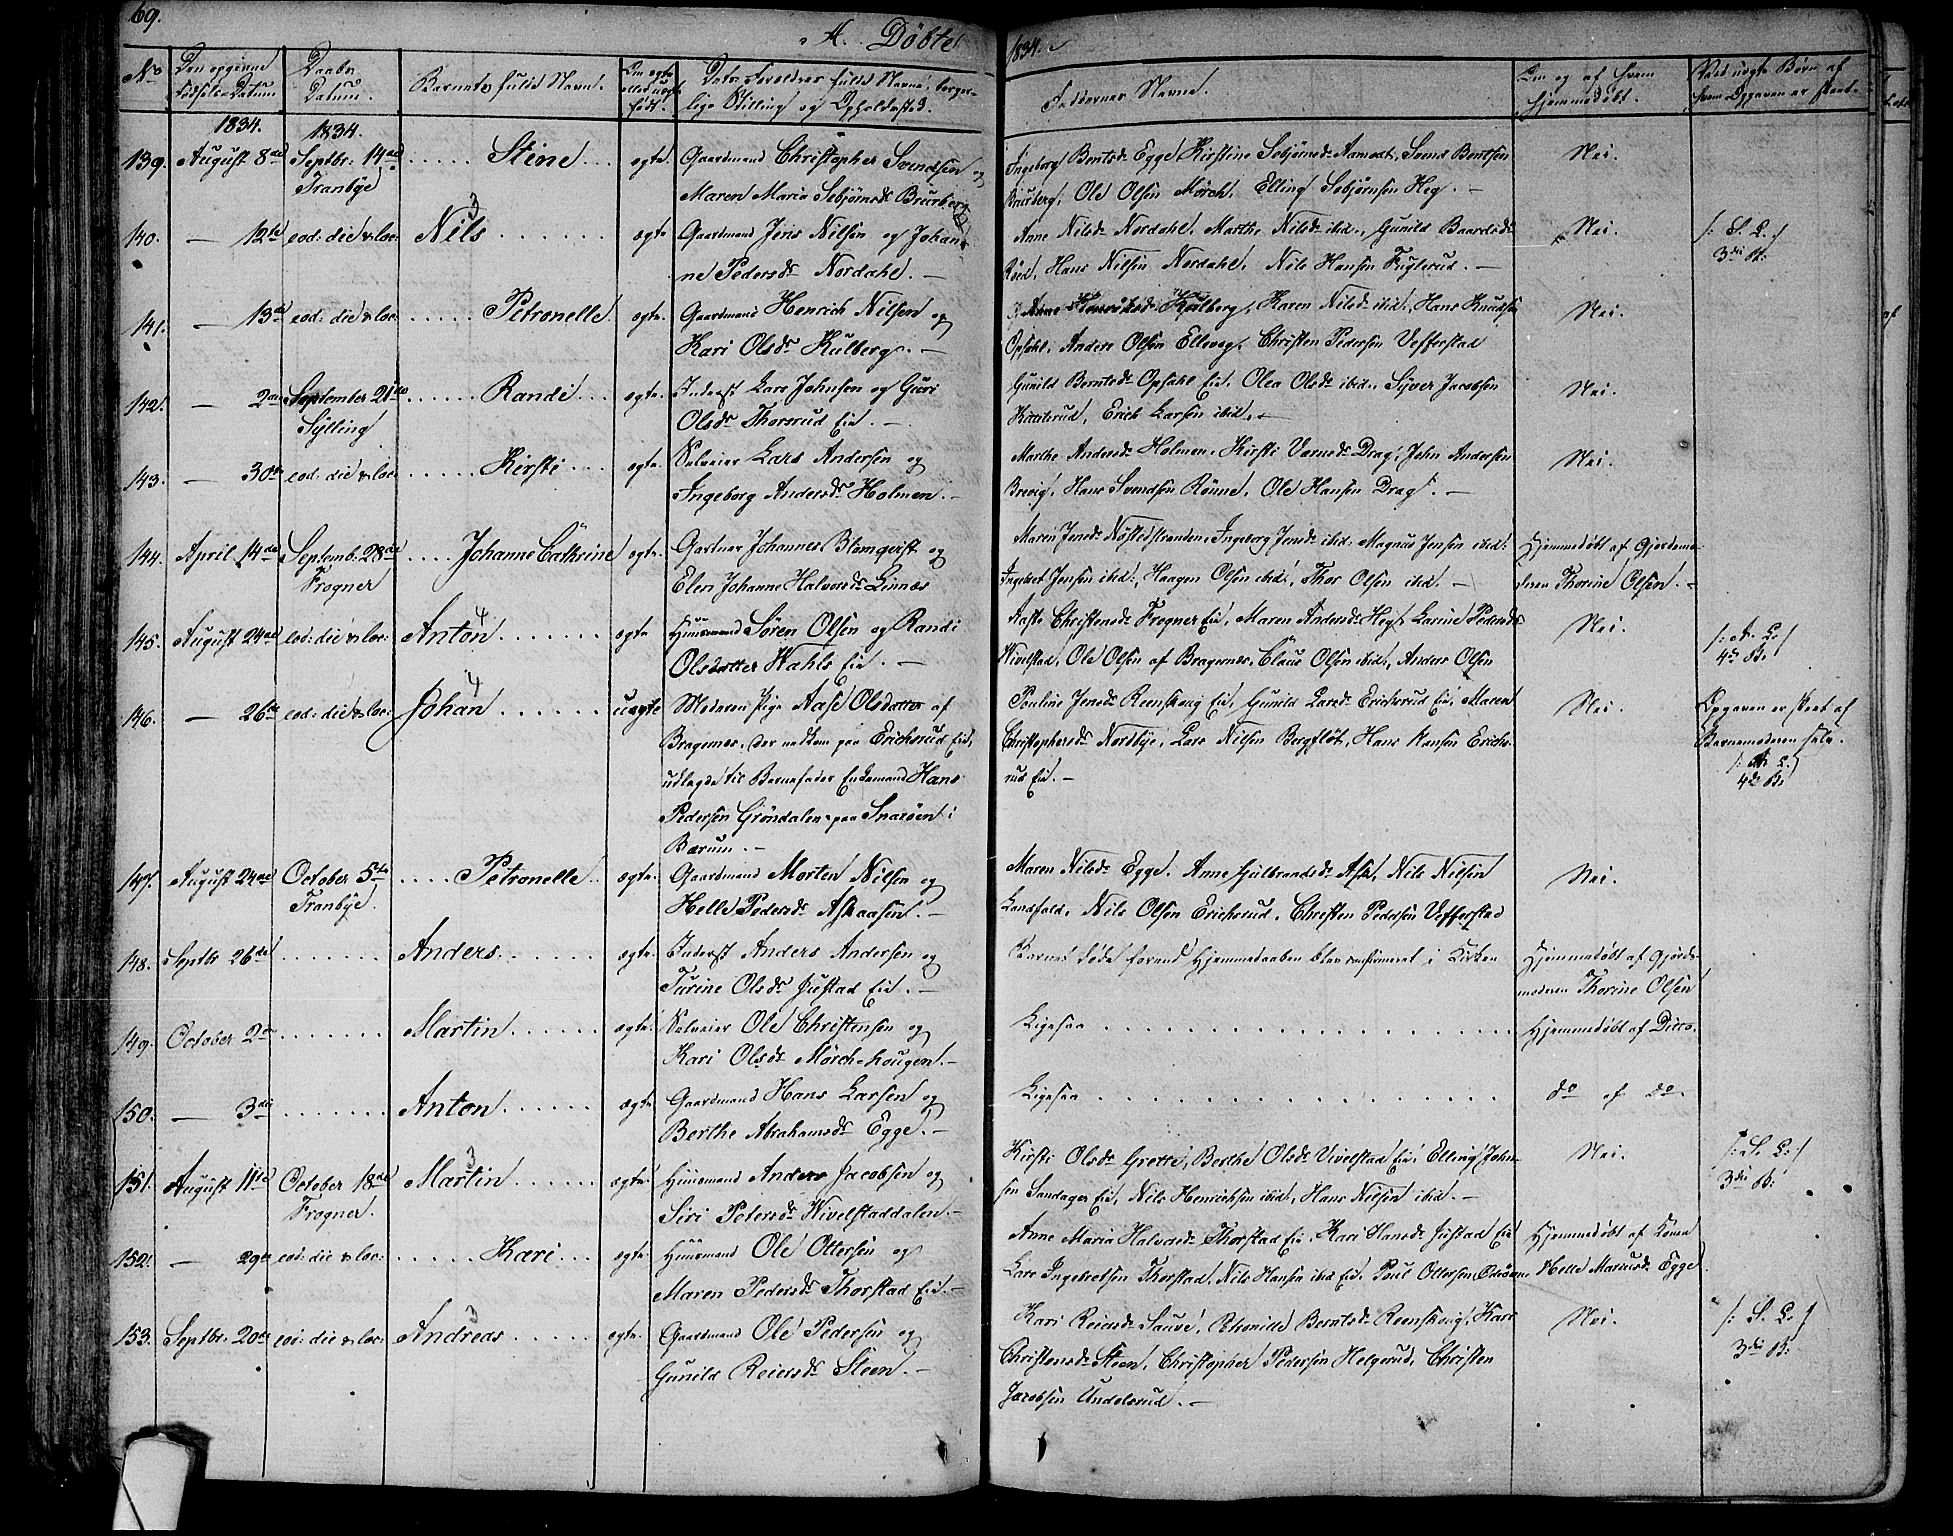 69.
A. Döbte
1834.
No
Den opgivne
Födsels-Datum
Daabs
Datum.
Barnets fulde Navn.
Om ægte
eller uægte
födt.
Forældres fulde Navne, borger-
lige Stilling og Opholdsted.
Faddernes Navne.
Om og af hvem
hjemmedöbt.
Ved uægte Börn af
hvem Opgaven er skeet.
1834.
1834.
139. August 8de Septbr: 14de Stine ægte. Gaardmand Christopher Svendsen og
Tranbye Maren Maria Sebjörnsdr Brurberg
Ingeborg Bentsdr Egge, Kirstine Sebjörnsdr Aamodt, Svend Bentsen
Brurberg, Ole Olsen Mörch, Elling Sebjörnsen Heg. Nei.
140. — 12te eod: die & loc: Nils 3 ægte Gaardmand Jens Nilsen og Johan-
ne Pedersdr Nordahl.
Anne Nilsdr Nordahl, Marthe Nilsdr ibid., Gunild Baardsdr
Röed, Hans Nilsen Nordahl, Nils Hansen Fuglerud. Nei. /: S. L. :/
3die B.
141. — 13de eod: die & loc: Petronelle ægte. Gaardmand Henrich Nilsen og
Kari Olsdr Kulberg.
Anne Kulberg, Karen Nilsdr ibid., Hans Knudsen
Opsahl, Anders Olsen Ellevog, Christen Pedersen Vefferstad Nei.
142. — 2den September 21de Randi ægte. Inderst Lars Johnsen og Guri
Sylling Olsdr Thorsrud Eie.
Gunild Berntsdr Opsahl Eie, Olea Olsdr ibid., Syver Jacobsen
Kittilsrud, Erich Larsen ibid. Nei.
143. — 30te eod: die & loc: Kirsti ægte. Selveier Lars Andersen og
Ingeborg Andersdr Holmen.
Marthe Andersdr Holmen, Kirsti Arnesdr Drag, John Andersen
Brevig, Hans Svendsen Rönne, Ole Hansen Drag. Nei.
144. April 14de Septemb: 28de Johanne Cathrine ægte. Gartner Johannes Blomqvist og
Frogner Elen Johanne Halvorsdr Linnæs
Maren Jensdr Nöstedstranden, Ingeborg Jensdr ibid. Magnus Jensen ibid:
Ingebret Jensen ibid:, Haagen Olsen ibid:, Thor Olsen ibid. Hjemmedöbt af Gjordemo-
deren Thorine Olsen.
145. August 24de eod: die & loc: Anton 4 ægte Huusmand Sören Olsen og Randi
Olsdatter Wahls Eie.
Aaste Christensdr Frogner Eie, Maren Andersdr Heg, Karine Pedersdr
Wivelstad, Ole Olsen af Bragernes, Claus Olsen ibid., Anders Olsen Nei. /: A. L. :/
4de B.
146. — 26de eod: die & loc: Johan 4 uægte Moderen Pige Aase Olsdatter af
Bragernes, der nedkom paa Erichsrud Eie,
udlagde til Barnefader Enkemand Hans
Pedersen Gröndalen paa Snaröen i
Bærum.
Pauline Jensdr Reenskoug Eie, Gunild Larsdr Erichsrud Eie, Maren
Christophersdr Nordbye, Lars Nilsen Bergflöt, Hans Hansen Erichs-
rud Eie. Nei. Opgaven er skeet af
Barnemoderen selv.
/: A. L. :/
4de B.
147. August 24de October 5te Petronelle ægte. Gaardmand Morten Nilsen og
Tranbye. Helle Pedersdr Askaasen.
Maren Nilsdr Egge, Anne Gulbrandsdr Ask, Nils Nilsen
Landfald, Nils Olsen Erichsrud, Christen Pedersen Vefferstad Nei.
148. Septbr 26de Anders ægte. Inderst Anders Andersen og
Turine Olsdr Justad Eie.
Barnet döde forend Hjemmedaaben blev confirmeret i Kirken Hjemmedöbt af Gjorde-
moderen Thorine Olsen
149. October 2den Martin ægte. Selveier Ole Christensen og
Kari Olsdr Mörch-hougen.
Ligesaa Hjemmedöbt af Ditto.
150. — 3die Anton ægte. Gaardmand Hans Larsen og
Berthe Abrahamsdr Egge.
Ligesaa do af do.
151. August 11te October 18de Martin 3 ægte. Huusmand Anders Jacobsen og
Frogner. Siri Petersdr Wivelstaddalen.
Kirsti Olsdr Grette, Berthe Olsdr Vivelstad Eie, Elling John-
sen Sandager Eie, Nils Henrichsen ibid., Hans Nilsen ibid. Nei. /: S. L. :/
3die B.
152. — 29de eod: die & loc: Kari ægte. Huusmand Ole Ottersen og
Maren Pedersdr Thorstad Eie.
Anne Maria Halvorsdr Thorstad Eie, Kari Hansdr Justad Eie
Lars Ingebretsen Thorstad, Nils Hansen ibid Eie, Poul Ottersen Hjemmedöbt af Konen
Helle Mariusdr Egge
153. Septbr: 20de eod: die & loc: Andreas 3 ægte. Gaardmand Ole Pedersen og
Gunild Reiersdr Steen.
Kari Reiersdr Sauve, Petronille Berntsdr Reenskoug, Kari
Christensdr Steen, Christopher Pedersen Helgerud, Christen
Jacobsen Undelsrud. Nei. /: S. L. :/
3die B.